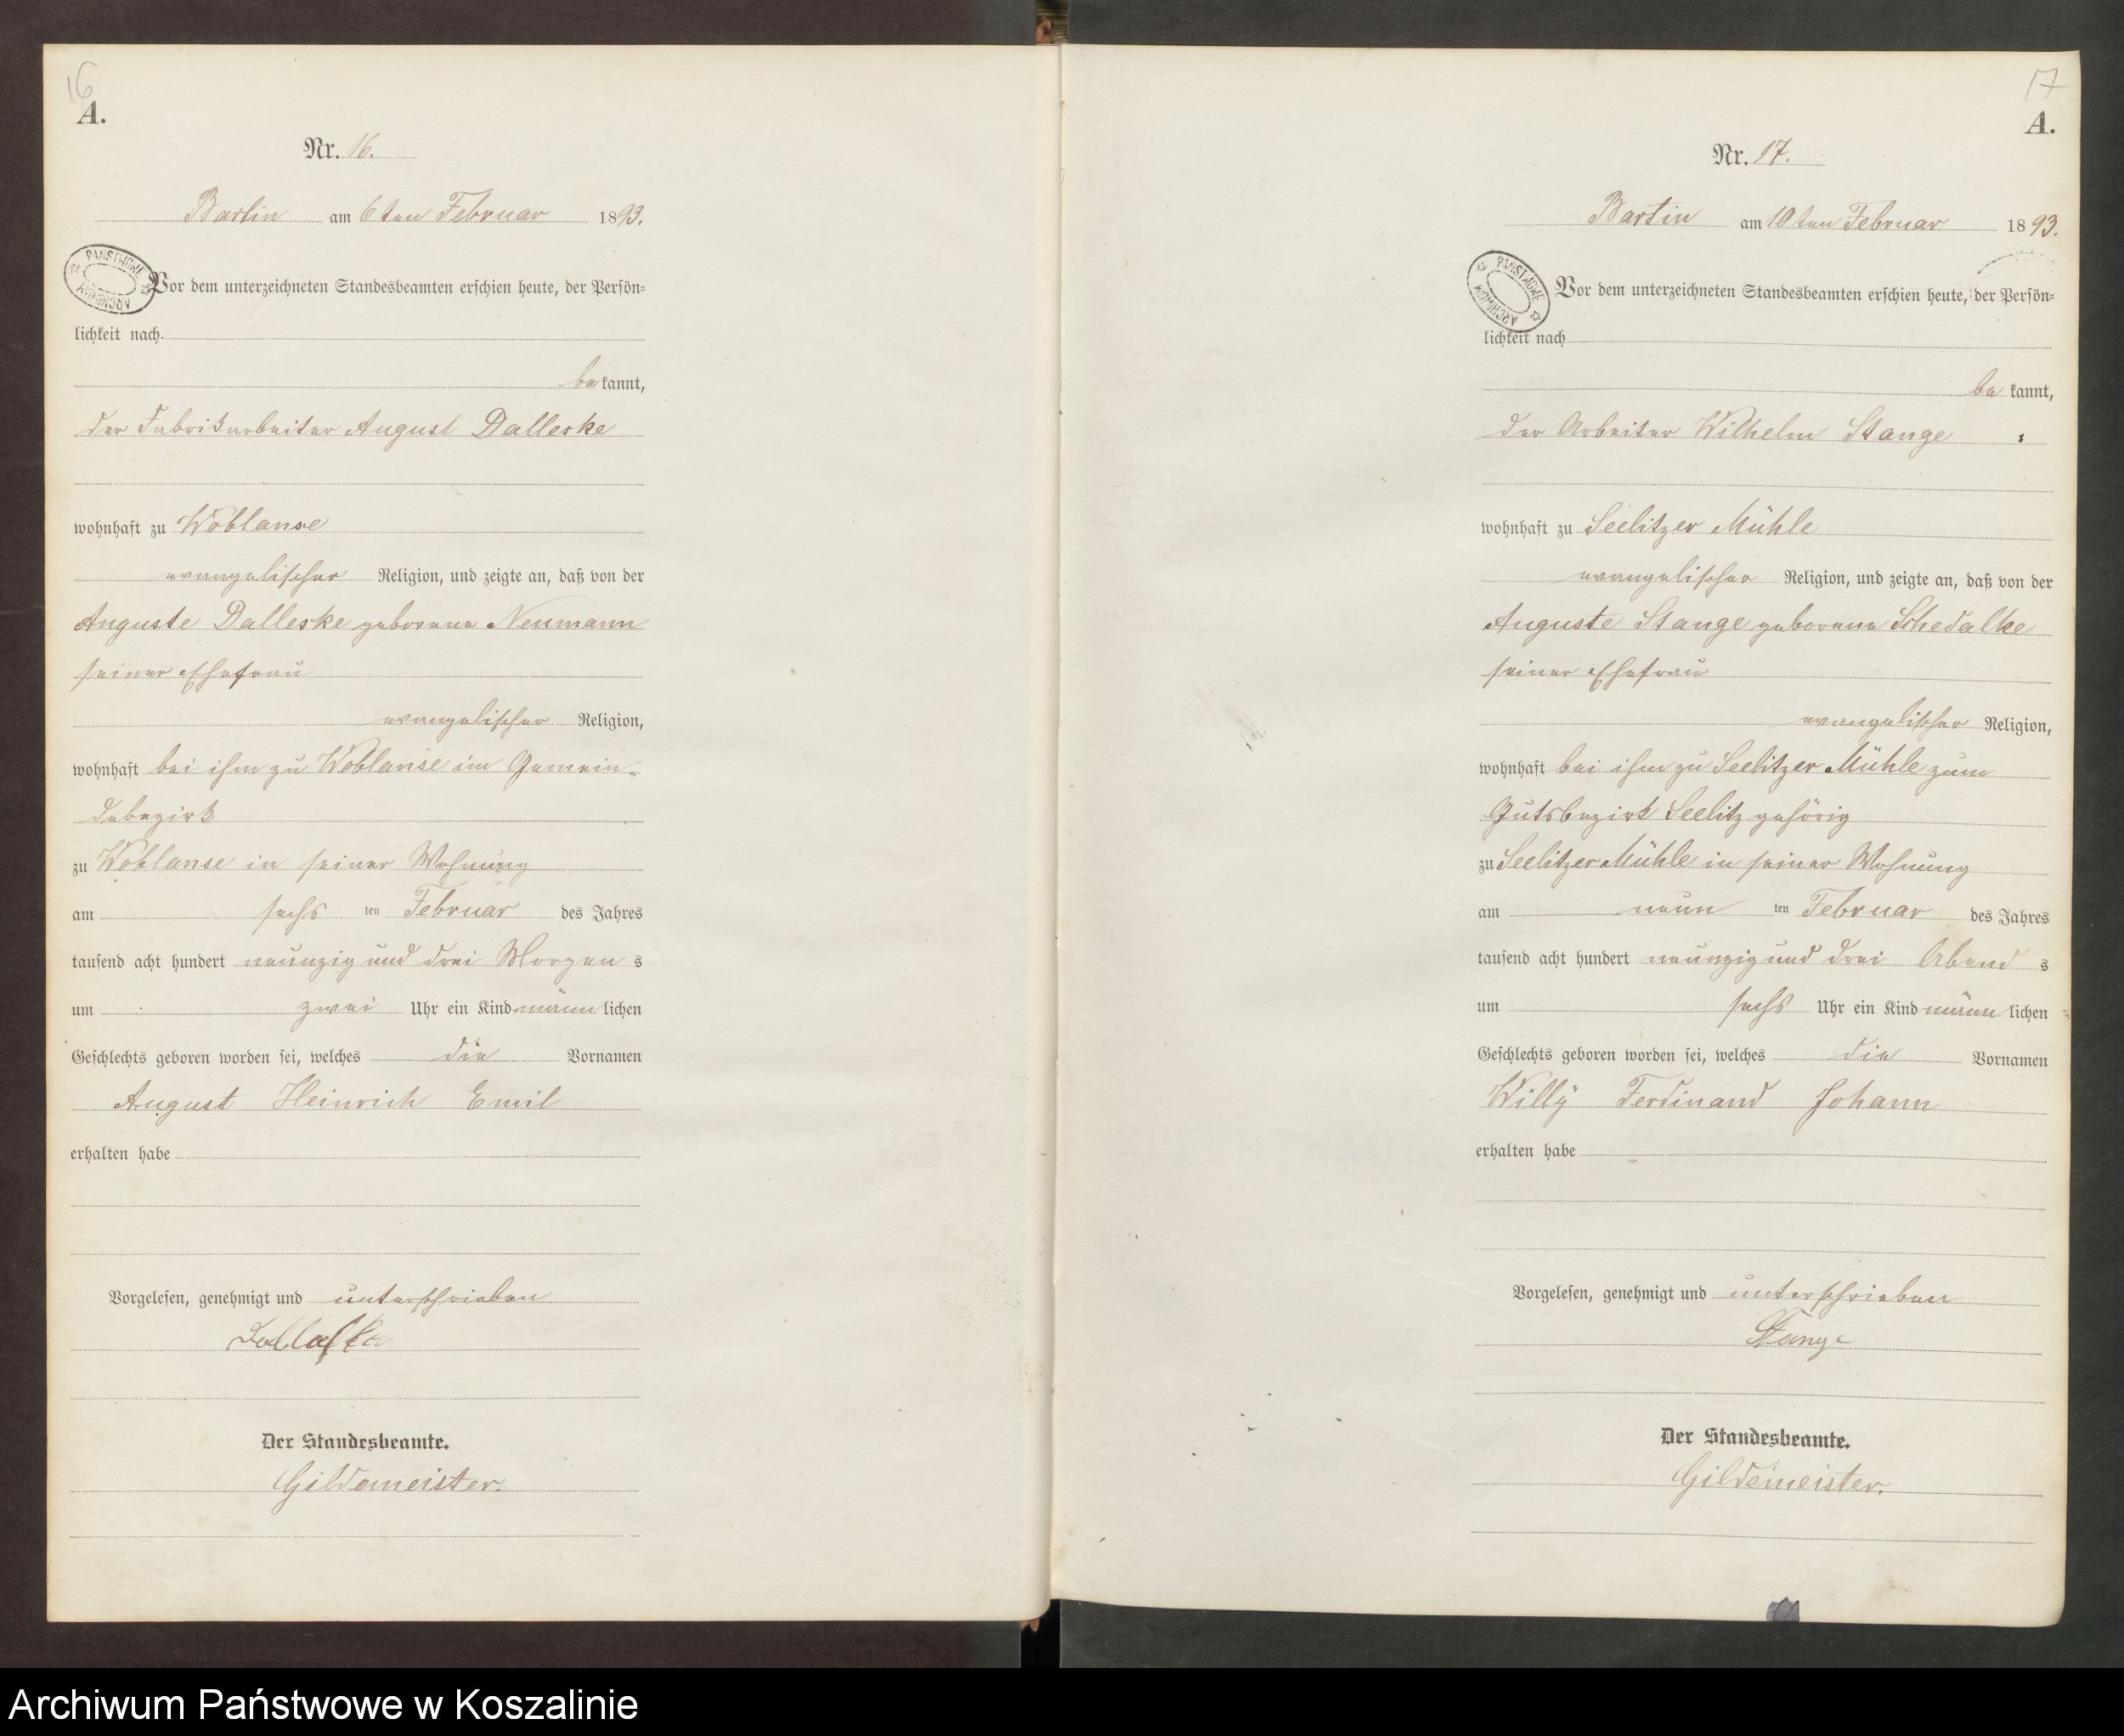 16
A.
Nr. 16.
Bartin am 6ten Februar 1893.
PAŃSTWOWE ARCHIWUM
Vor dem unterzeichneten Standesbeamten erschien heute, der Persön=
lichkeit nach
be kannt,
der Fabrikarbeiter August Dalleske
wohnhaft zu Woblanse
evangelischer Religion, und zeigte an, daß von der
Auguste Dalleske geborene Neumann
seiner Ehefrau
evangelischer Religion,
wohnhaft bei ihm zu Woblanse im Gemein-
debezirk
zu Woblanse in seiner Wohnung
am sechs ten Februar des Jahres
tausend acht hundert neunzig und drei Morgen s
um zwei Uhr ein Kind männ lichen
Geschlechts geboren worden sei, welches die Vornamen
August Heinrich Emil
erhalten habe
Vorgelesen, genehmigt und unterschrieben
Der Standesbeamte.
Gildemeister.
17
A.
Nr. 17.
Bartin am 10ten Februar 1893.
PAŃSTWOWE ARCHIWUM
Vor dem unterzeichneten Standesbeamten erschien heute, der Persön=
lichkeit nach
be kannt,
der Arbeiter Wilhelm Stange
wohnhaft zu Seelitzer Mühle
evangelischer Religion, und zeigte an, daß von der
Auguste Stange geborene Schedalke
seiner Ehefrau
evangelischer Religion,
wohnhaft bei ihm zu Seelitzer Mühle zum
Gutsbezirk Seelitz gehörig
zu Seelitzer Mühle in seiner Wohnung
am neun ten Februar des Jahres
tausend acht hundert neunzig und drei Abend s
um sechs Uhr ein Kind männ lichen
Geschlechts geboren worden sei, welches die Vornamen
Willy Ferdinand Johann
erhalten habe
Vorgelesen, genehmigt und unterschrieben
Stange
Der Standesbeamte.
Gildemeister.
Archiwum Państwowe w Koszalinie